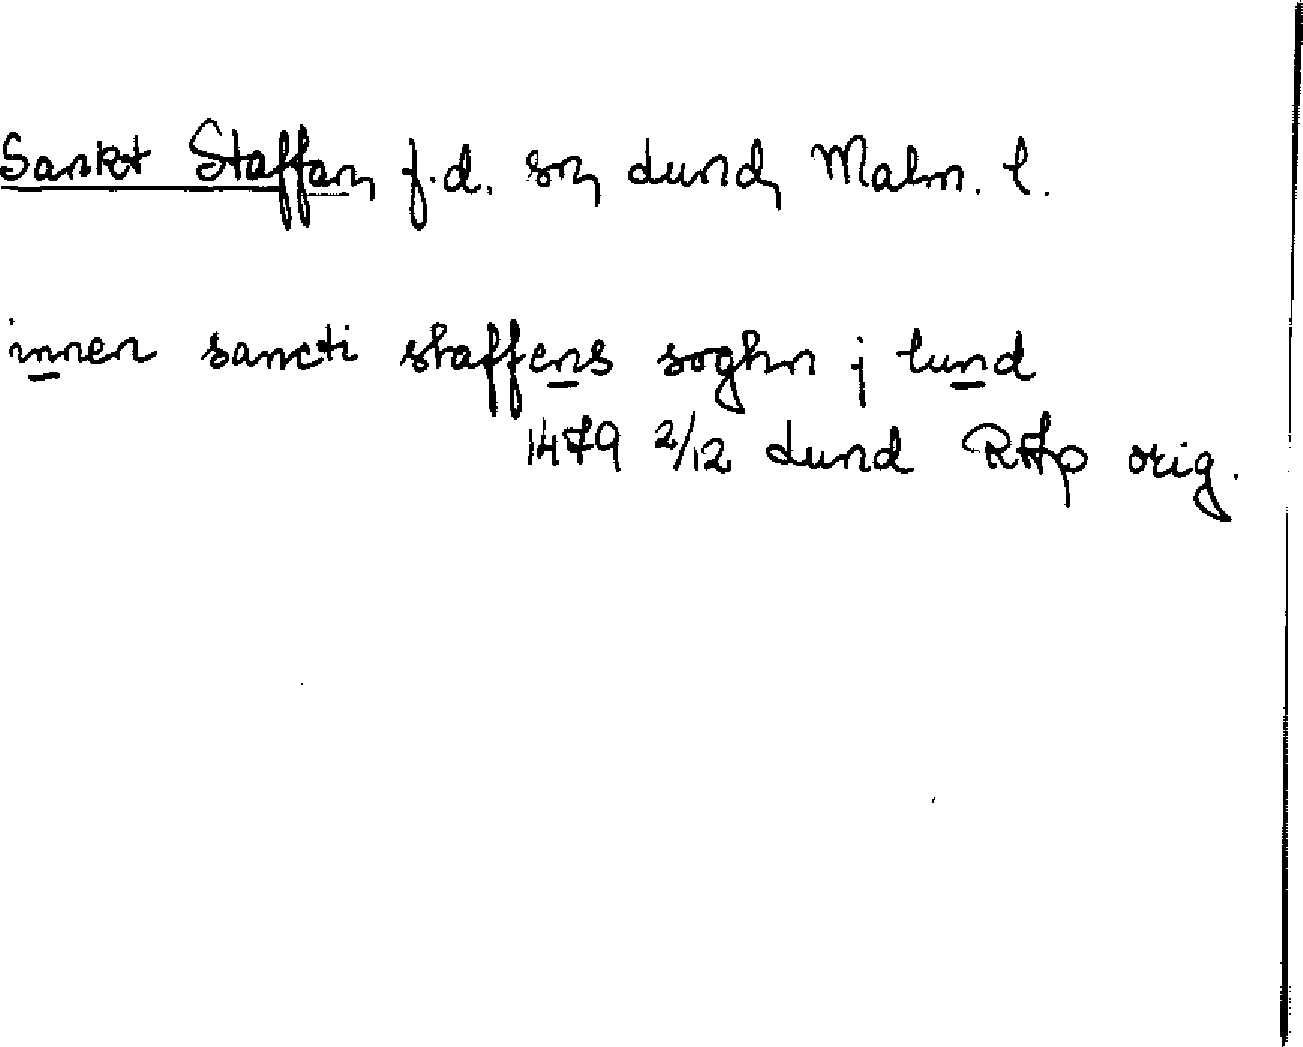 Sankt Staffan, f.d. sn, Lund, Malm. l.
innen sancti staffens soghn j lund
1479 2/12 Lund RAp orig.